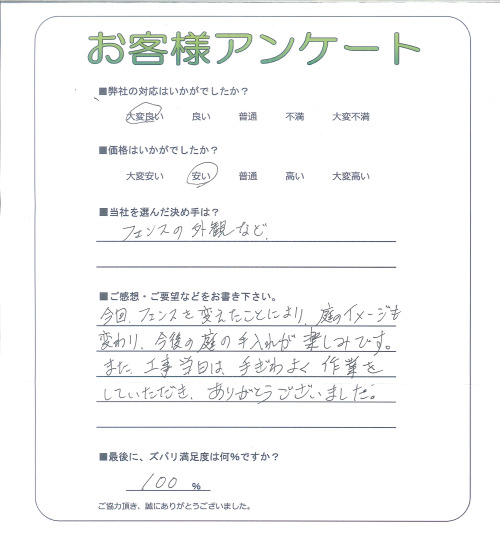 お客様アンケート
■弊社の対応はいかがでしたか？
大変良い　良い　普通　不満　大変不満
■価格はいかがでしたか？
大変安い　安い　普通　高い　大変高い
■当社を選んだ決め手は？
フェンスの外観など.
■ご感想・ご要望などをお書き下さい。
今回、フェンスを変えたことにより、庭のイメージも
変わり、今後の庭の手入れが楽しみです。
また、工事当日は、手ぎわよく作業を
していただき、ありがとうございました。
■最後に、ズバリ満足度は何%ですか？
100 %
ご協力頂き、誠にありがとうございました。